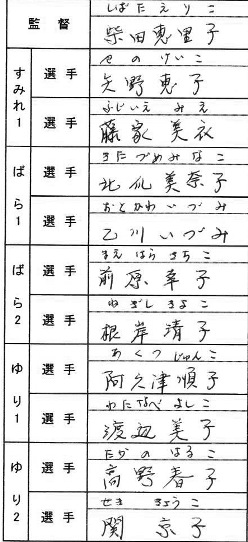 しばたえりこ
監督 柴田恵里子
せのけいこ
すみれ1 選手 矢野恵子
ふじいえ みえ
選手 藤家美衣
きたづめみなこ
ばら1 選手 北爪美奈子
おとかわいづみ
選手 乙川いづみ
まえはらさちこ
ばら2 選手 前原幸子
ねぎしきよこ
選手 根岸清子
あくつじゅんこ
ゆり1 選手 阿久津順子
わたなべよしこ
選手 渡辺美子
たかのはるこ
ゆり2 選手 高野春子
せききょうこ
選手 関京子